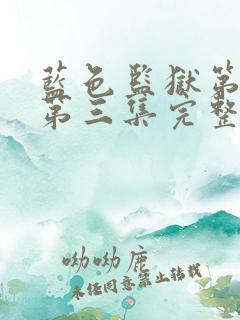 藍色監獄第
第三集完整
呦呦鹿
未经同意禁止转载